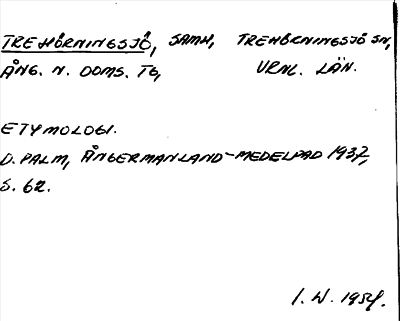 TREHÖRNINGSJÖ, SAMH, TREHÖRNINGSJÖ SN,
ÅNG. N. DOMS. TG, VRNL. LÄN.
ETYMOLOGI.
D. PALM, ÅNGERMANLAND-MEDELPAD 1937,
S. 62.
I. W. 1954.